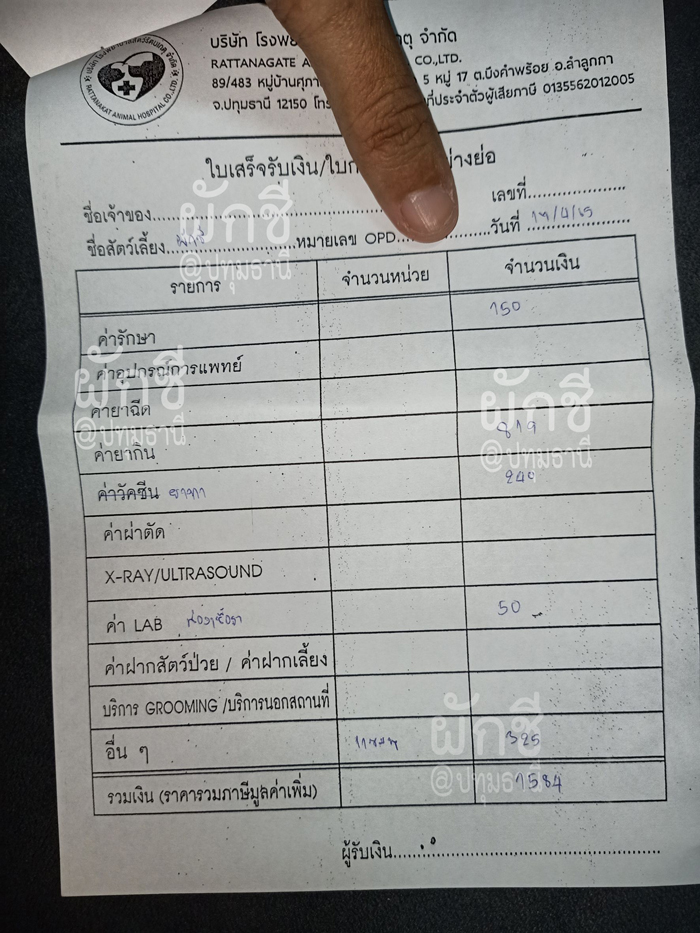 บริษัท โรงพย ตุ จำกัด
RATTANAGATE A CO.,LTD.
89/483 หมู่บ้านศุภา 5 หมู่ 17 ต.บึงคำพร้อย อ.ลำลูกกา
จ.ปทุมธานี 12150 โทร ที่ประจำตัวผู้เสียภาษี 0135562012005
RATTANAKAT ANIMAL HOSPITAL CO.,LTD.
ใบเสร็จรับเงิน/ใบก ย่างย่อ
ชื่อเจ้าของ เลขที่
ชื่อสัตว์เลี้ยง ผักชี หมายเลข OPD วันที่
ผักชี
@ปทุมธานี
รายการ จำนวนหน่วย จำนวนเงิน
ค่ารักษา 150
ค่าอุปกรณ์การแพทย์
ค่ายาฉีด
ผักชี
@ปทุมธานี
ผักชี
@ปทุมธานี
ค่ายากิน 819
ค่าวัคซีน ยาทา 240
ค่าผ่าตัด
X-RAY/ULTRASOUND
ค่า LAB 50
ค่าฝากสัตว์ป่วย / ค่าฝากเลี้ยง
บริการ GROOMING /บริการนอกสถานที่
อื่น ๆ 325
ผักชี
@ปทุมธานี
รวมเงิน (ราคารวมภาษีมูลค่าเพิ่ม) 1584
ผู้รับเงิน